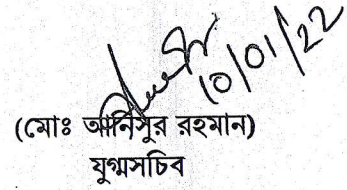 10/01/22
(মোঃ আনিসুর রহমান)
যুগ্মসচিব